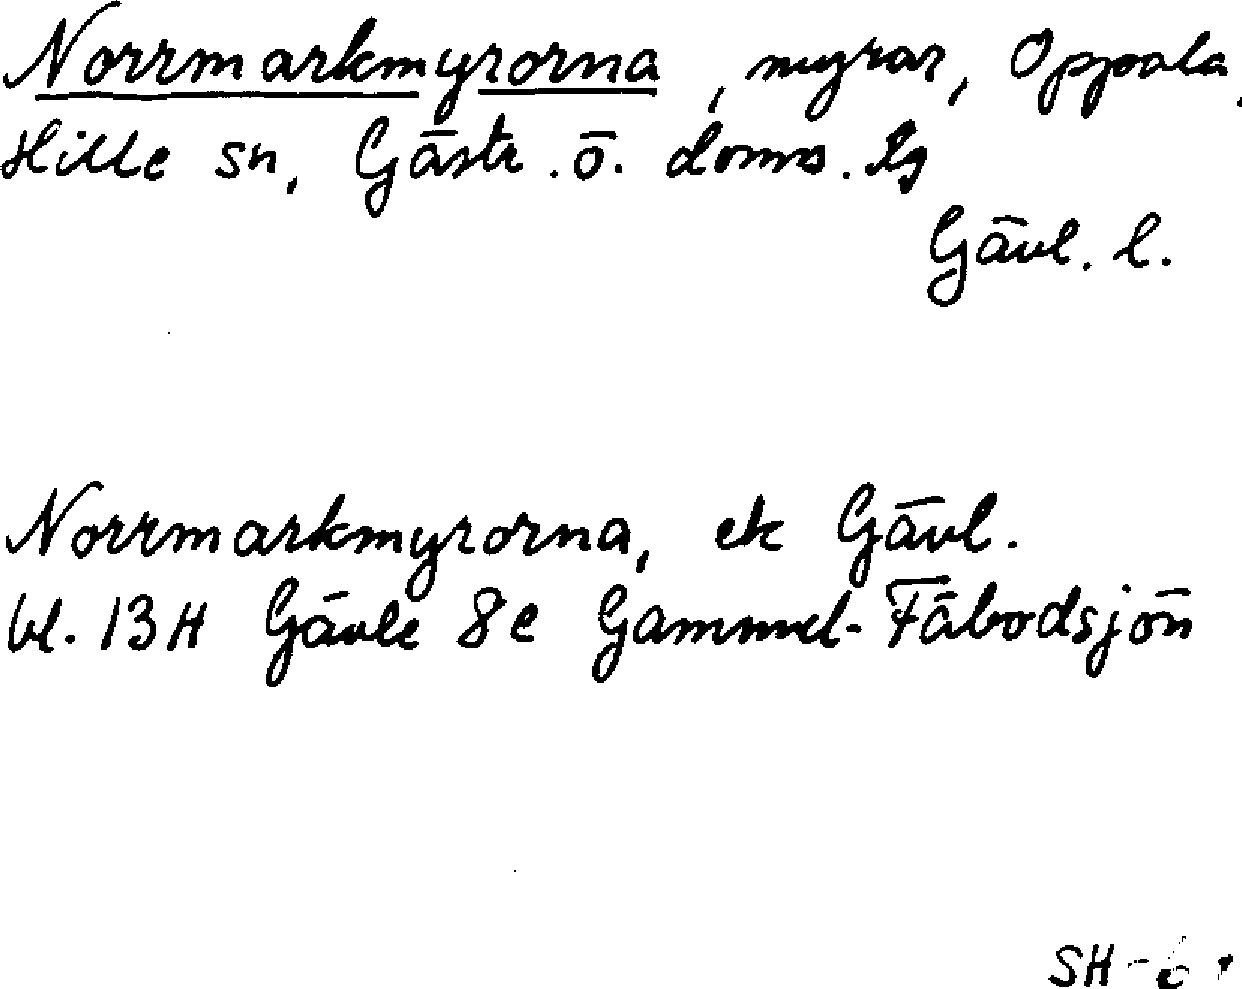 Norrmarkmyrorna, myrar, Oppala,
Hille sn, Gästr. ö. doms. lg
Gävl. l.
Norrmarkmyrorna, ek Gävl.
bl. 13H Gävle 8e Gammel-Fäbodsjön
SH-